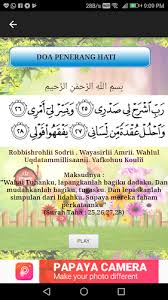 288B/s 74% 9:09 PM
DOA PENERANG HATI
بِسْمِ اللَّهِ الرَّحْمَٰنِ الرَّحِيمِ
رَبِّ اشْرَحْ لِي صَدْرِي ﴿٢٥﴾ وَيَسِّرْ لِي أَمْرِي ﴿٢٦﴾
وَاحْلُلْ عُقْدَةً مِّن لِّسَانِي ﴿٢٧﴾ يَفْقَهُوا قَوْلِي ﴿٢٨﴾
Robbishrohlii Sodrii . Wayasirlii Amrii. Wahlul
Uqdatammillisaanii. Yafkohuu Koulii
Maksudnya :
"Wahai Tuhanku, lapangkanlah bagiku dadaku. Dan
mudahkanlah bagiku, tugasku. Dan lepaskanlah
simpulan dari lidahku. Sopaya mereka faham
perkataanku"
(Surah Taha : 25,26,27,28)
PLAY
PAPAYA CAMERA
Make your photo different